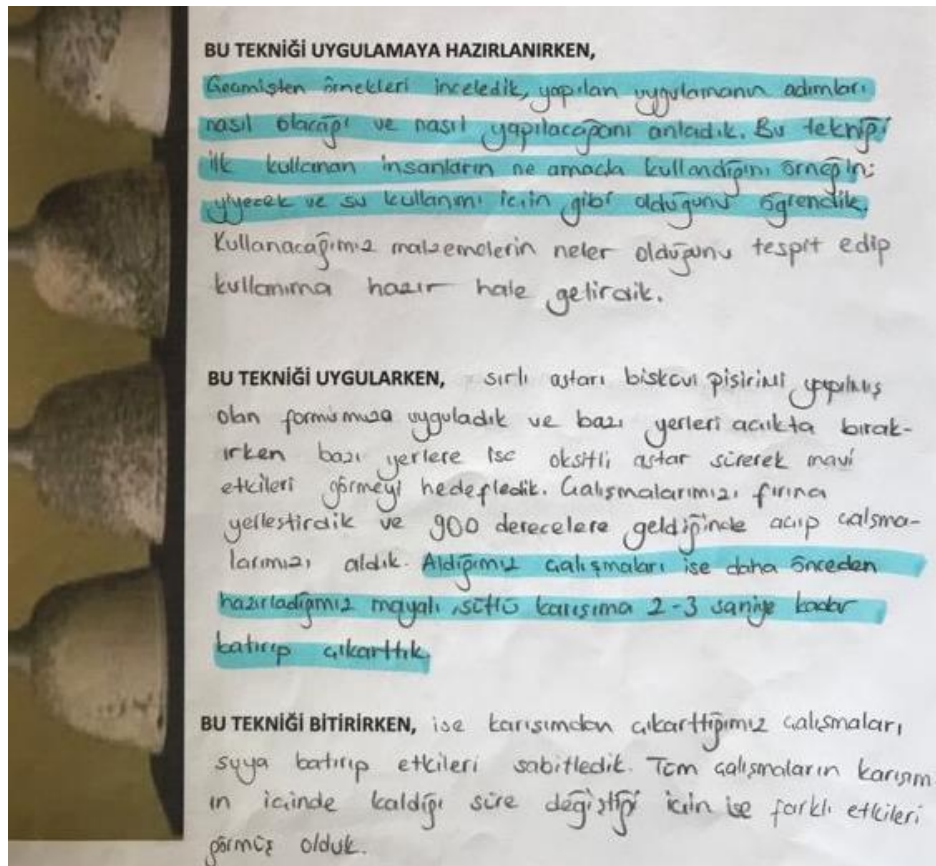 BU TEKNİĞİ UYGULAMAYA HAZIRLANIRKEN,
Geçmişten örnekleri inceledik, yapılan uygulamanın adımları
nasıl olacağı ve nasıl yapılacağını anladık. Bu tekniği
ilk kullanan insanların ne amaçla kullandığını örneğin:
yiyecek ve su kullanımı için gibi olduğunu öğrendik.
Kullanacağımız malzemelerin neler olduğunu tespit edip
kullanıma hazır hale getirdik.
BU TEKNİĞİ UYGULARKEN, sırlı astarı bisküvi pişirimi yapılmış
olan formumuza uyguladık ve bazı yerleri açıkta bırak-
ırken bazı yerlere ise oksitli astar sürerek mavi
etkileri görmeyi hedefledik. Çalışmalarımızı fırına
yerleştirdik ve 900 derecelere geldiğinde açıp çalışma-
larımızı aldık. Aldığımız çalışmaları ise daha önceden
hazırladığımız mayalı, sütlü karışıma 2-3 saniye kadar
batırıp çıkarttık.
BU TEKNİĞİ BİTİRİRKEN, ise karışımdan çıkarttığımız çalışmaları,
suya batırıp etkileri sabitledik. Tüm çalışmaların karışım
ın içinde kaldığı süre değiştiği için ise farklı etkileri
görmüş olduk.